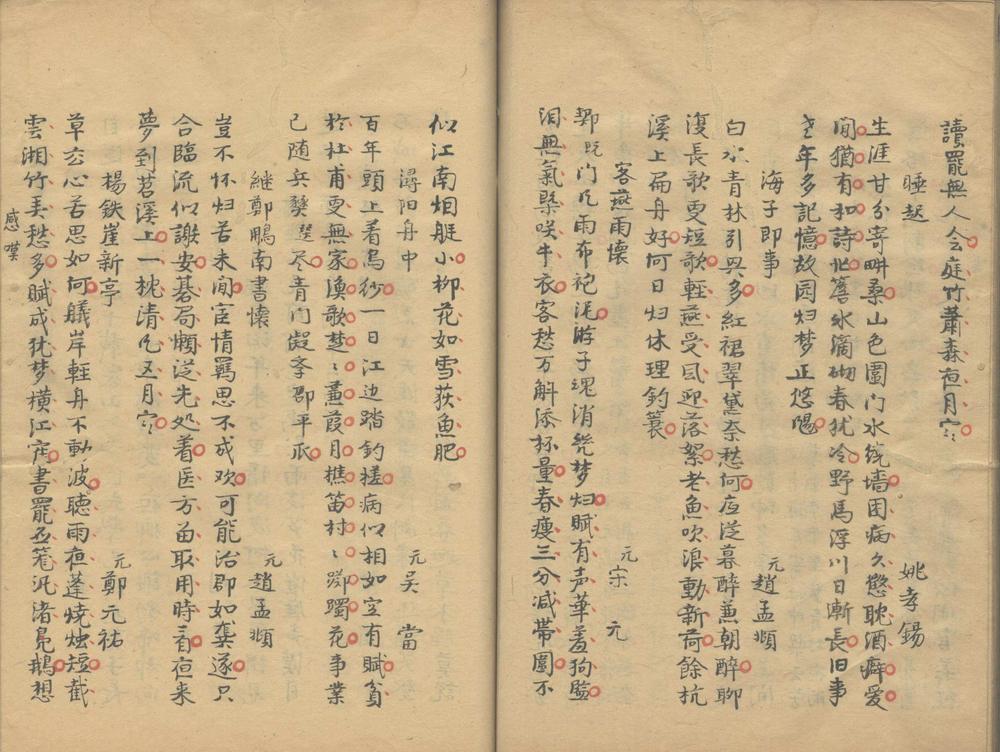 讀罷無人会庭竹蕭森夜月寒
睡起 姚孝錫
生涯甘分寄畊桑山色圍門水繞墻因病久慙耽酒癖爱
閒猶有和詩忙簷氷滴砌春犹冷野馬浮川日漸長旧事
老年多記憶故园归梦正悠陽
海子即事 元趙孟頫
白水青林引兴多紅裙翠黛奈愁何应從暮醉兼朝醉聊
復長歌更短歌輕燕受風迎落絮老魚吹浪動新荷餘杭
溪上扁舟好何日归休理釣蓑
客燕雨懷 元宋 元
郭门风雨布袍泥游子魂消梦归賦有声華羞狗監
泪無氣槩咲牛衣客愁万斛添杯量春瘦三分减带圍不
似江南烟艇小柳花如雪荻魚肥
潯阳舟中 元吴 當
百年頭上着烏纱一日江边踏釣槎病似相如空有賦貧
於杜甫更無家漁歌楚〻蒹葭月樵笛村〻躑躅花事業
已随兵燹尽青门凝季邵平瓜
継鄭鵬南書懷 元趙孟頫
豈不怀归苦未閒宦情羁思不成欢可能治郡如龚遂只
合臨流似謝安碁局懶從先処着医方苗取用時看夜来
夢到苕溪上一枕清风五月寒〻
楊鉄崖新亭 元鄭元祐
草玄心苦思如何艤岸輕舟不動波聽雨夜蓬燒烛短截
雲湘竹美愁多賦成犹梦横江鹤書罷笼汎渚凫鵝想
感嘆